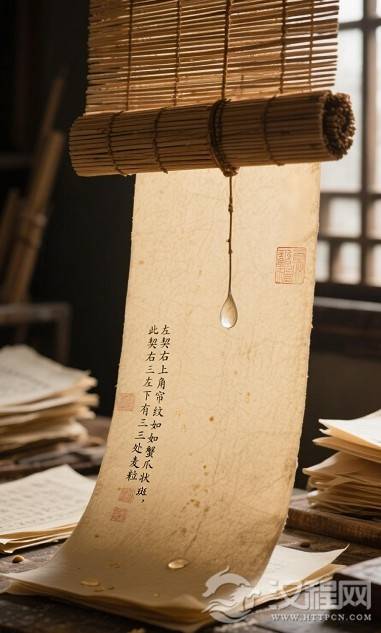 左契右上角帘纹如如蟹爪状斑，
此契右三左下有三三处麦粒
汉程网
WWW.HTTPCN.COM